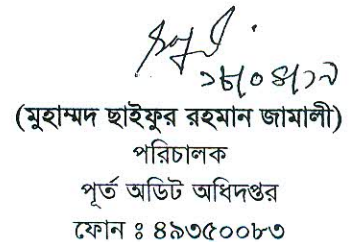 ১৮/০৪/১৯
(মুহাম্মদ ছাইফুর রহমান জামালী)
পরিচালক
পূর্ত অডিট অধিদপ্তর
ফোন ঃ ৪৯৩৫০০৮৩